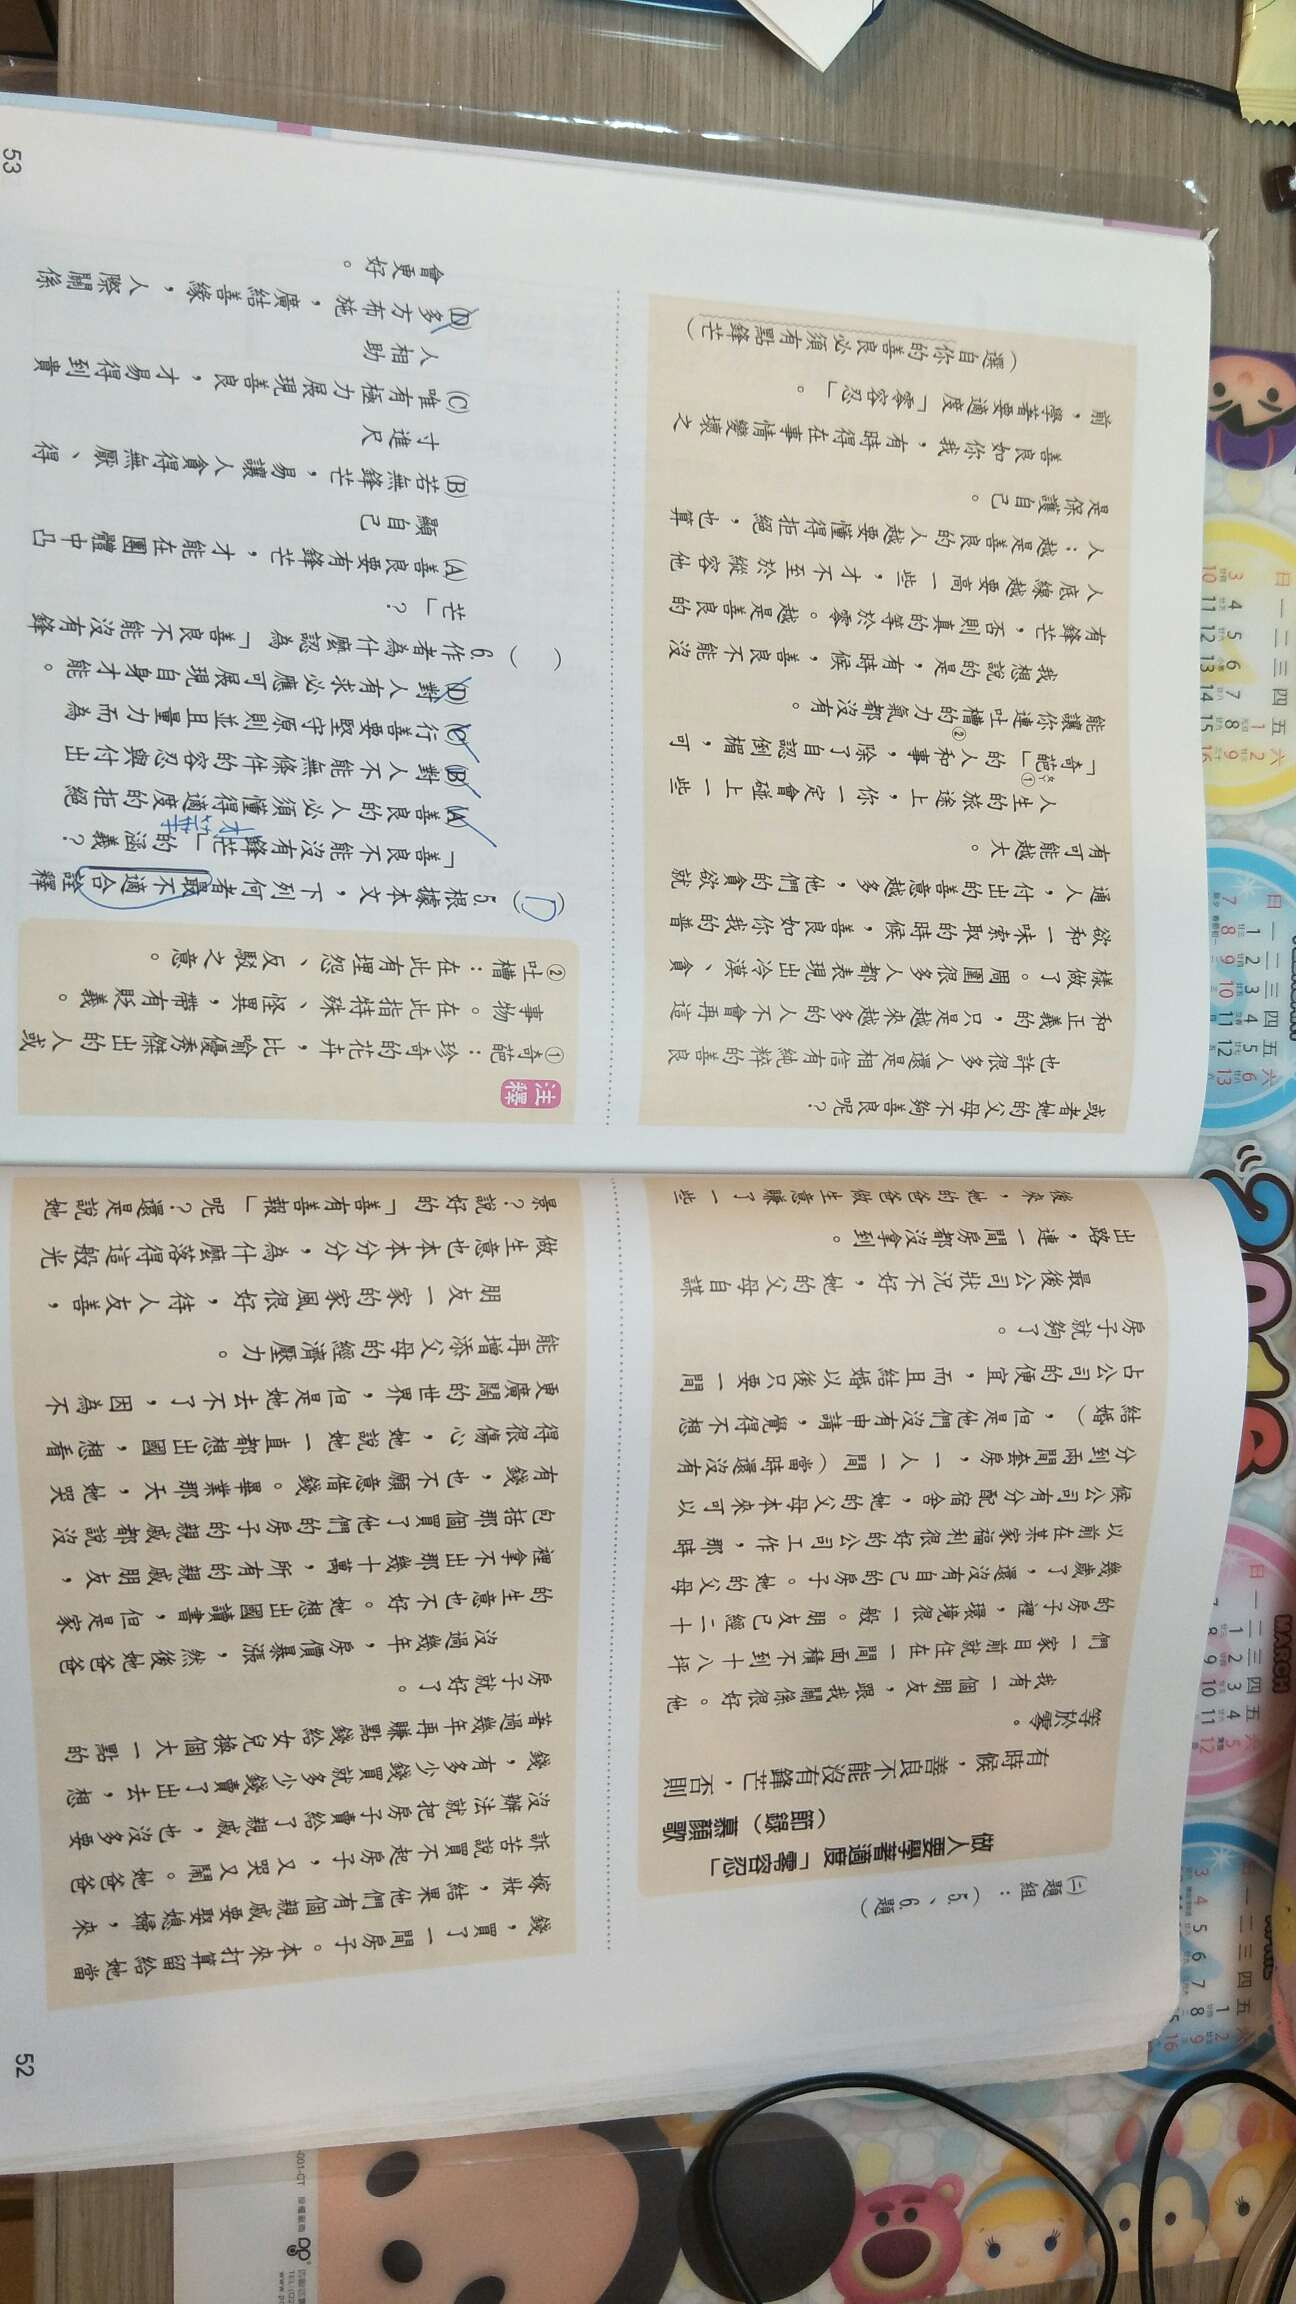 (二)題組：(5、6題)
做人要學著適度「零容忍」
(節錄) 慕顏歌
有時候，善良不能沒有鋒芒，否則
等於零。
我有一個朋友，跟我關係很好。他
們一家目前就住在一間面積不到十八坪
的房子裡，環境很一般。朋友已經二十
幾歲了，還沒有自己的房子。她的父母
以前在某家福利很好的公司工作，那時
候公司有分配宿舍，她的父母本來可以
分到兩間套房，一人一間(當時還沒有
結婚)，但是他們沒有申請，覺得不想
占公司的便宜，而且結婚以後只要一間
房子就夠了。
最後公司狀況不好，她的父母自謀
出路，連一間房都沒拿到。
後來，她的爸爸做生意賺了一些
錢，買了一間房子。本來打算留給她當
嫁妝，結果他們有個親戚要娶媳婦，來
訴苦說買不起房子，又哭又鬧。她爸爸
沒辦法就把房子賣給了親戚，也沒多要
錢，有多少錢就多少錢賣了出去，想
著過幾年再賺點錢給兒女換個大一點的
房子就好了。
沒過幾年，房價暴漲，然後她爸爸
的生意也不好。她想出國讀書，但是家
裡拿不出那幾十萬，所有的親戚朋友，
包括那個買了他們的房子的親戚都說沒
有錢，也不願意借錢。畢業那天，她哭
得很傷心，她說她一直都想出國，想看
更廣闊的世界，但是她去不了，因為不
能再增添父母的經濟壓力。
朋友一家的家風很好，待人友善，
做生意也本本分分，為什麼落得這般光
景？說好的「善有善報」呢？還是說她
52
或者她的父母不夠善良呢？
也許很多人還是相信有純粹的善良
和正義的，只是越來越多的人不會再這
樣做了。周圍很多人都表現出冷漠、貪
欲和一味索取的時候，善良如你我的普
通人，付出的善意越多，他們的貪欲就
有可能越大。
人生的旅途上，你一定會碰上一些
「奇葩①」的人和事，除了自認倒楣，可
ㄆㄚ
能讓你連吐槽②的力氣都沒有。
我想說的是，有時候，善良不能沒
有鋒芒，否則真的等於零。越是善良的
人底線越要高一些，才不至於縱容他
人；越是善良的人越要懂得拒絕，也算
是保護自己。
善良如你我，有時得在事情變壞之
前，學著要適度「零容忍」。
(選自你的善良必須有點鋒芒)
注釋
①奇葩：珍奇的花卉，比喻優秀傑出的人或
事物。在此指特殊、怪異，帶有貶義。
②吐槽：在此有埋怨、反駁之意。
(D)5.根據本文，下列何者最不適合詮釋
「善良不能沒有鋒芒」的涵義？
才等華
(A)善良的人必須懂得適度的拒絕
(B)對人不能無條件的容忍與付出
(C)行善要堅守原則並且量力而為
(D)對人有求必應可展現自身才能。
( )6.作者為什麼認為「善良不能沒有鋒
芒」？
(A)善良要有鋒芒，才能在團體中凸
顯自己
(B)若無鋒芒，易讓人貪得無厭、得
寸進尺
(C)唯有極力展現善良，才易得到貴
人相助
(D)多方布施，廣結善緣，人際關係
會更好。
53
2016
MARCH
日一二三四五六